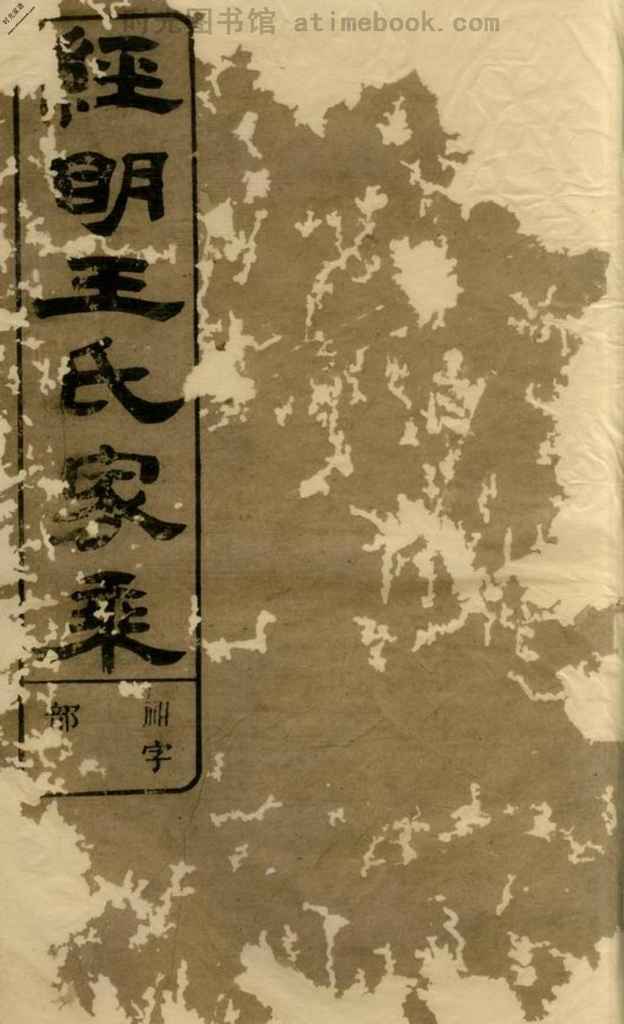 时光图书馆 atimebook.com
時光家譜
經明王氏家乘
字
部